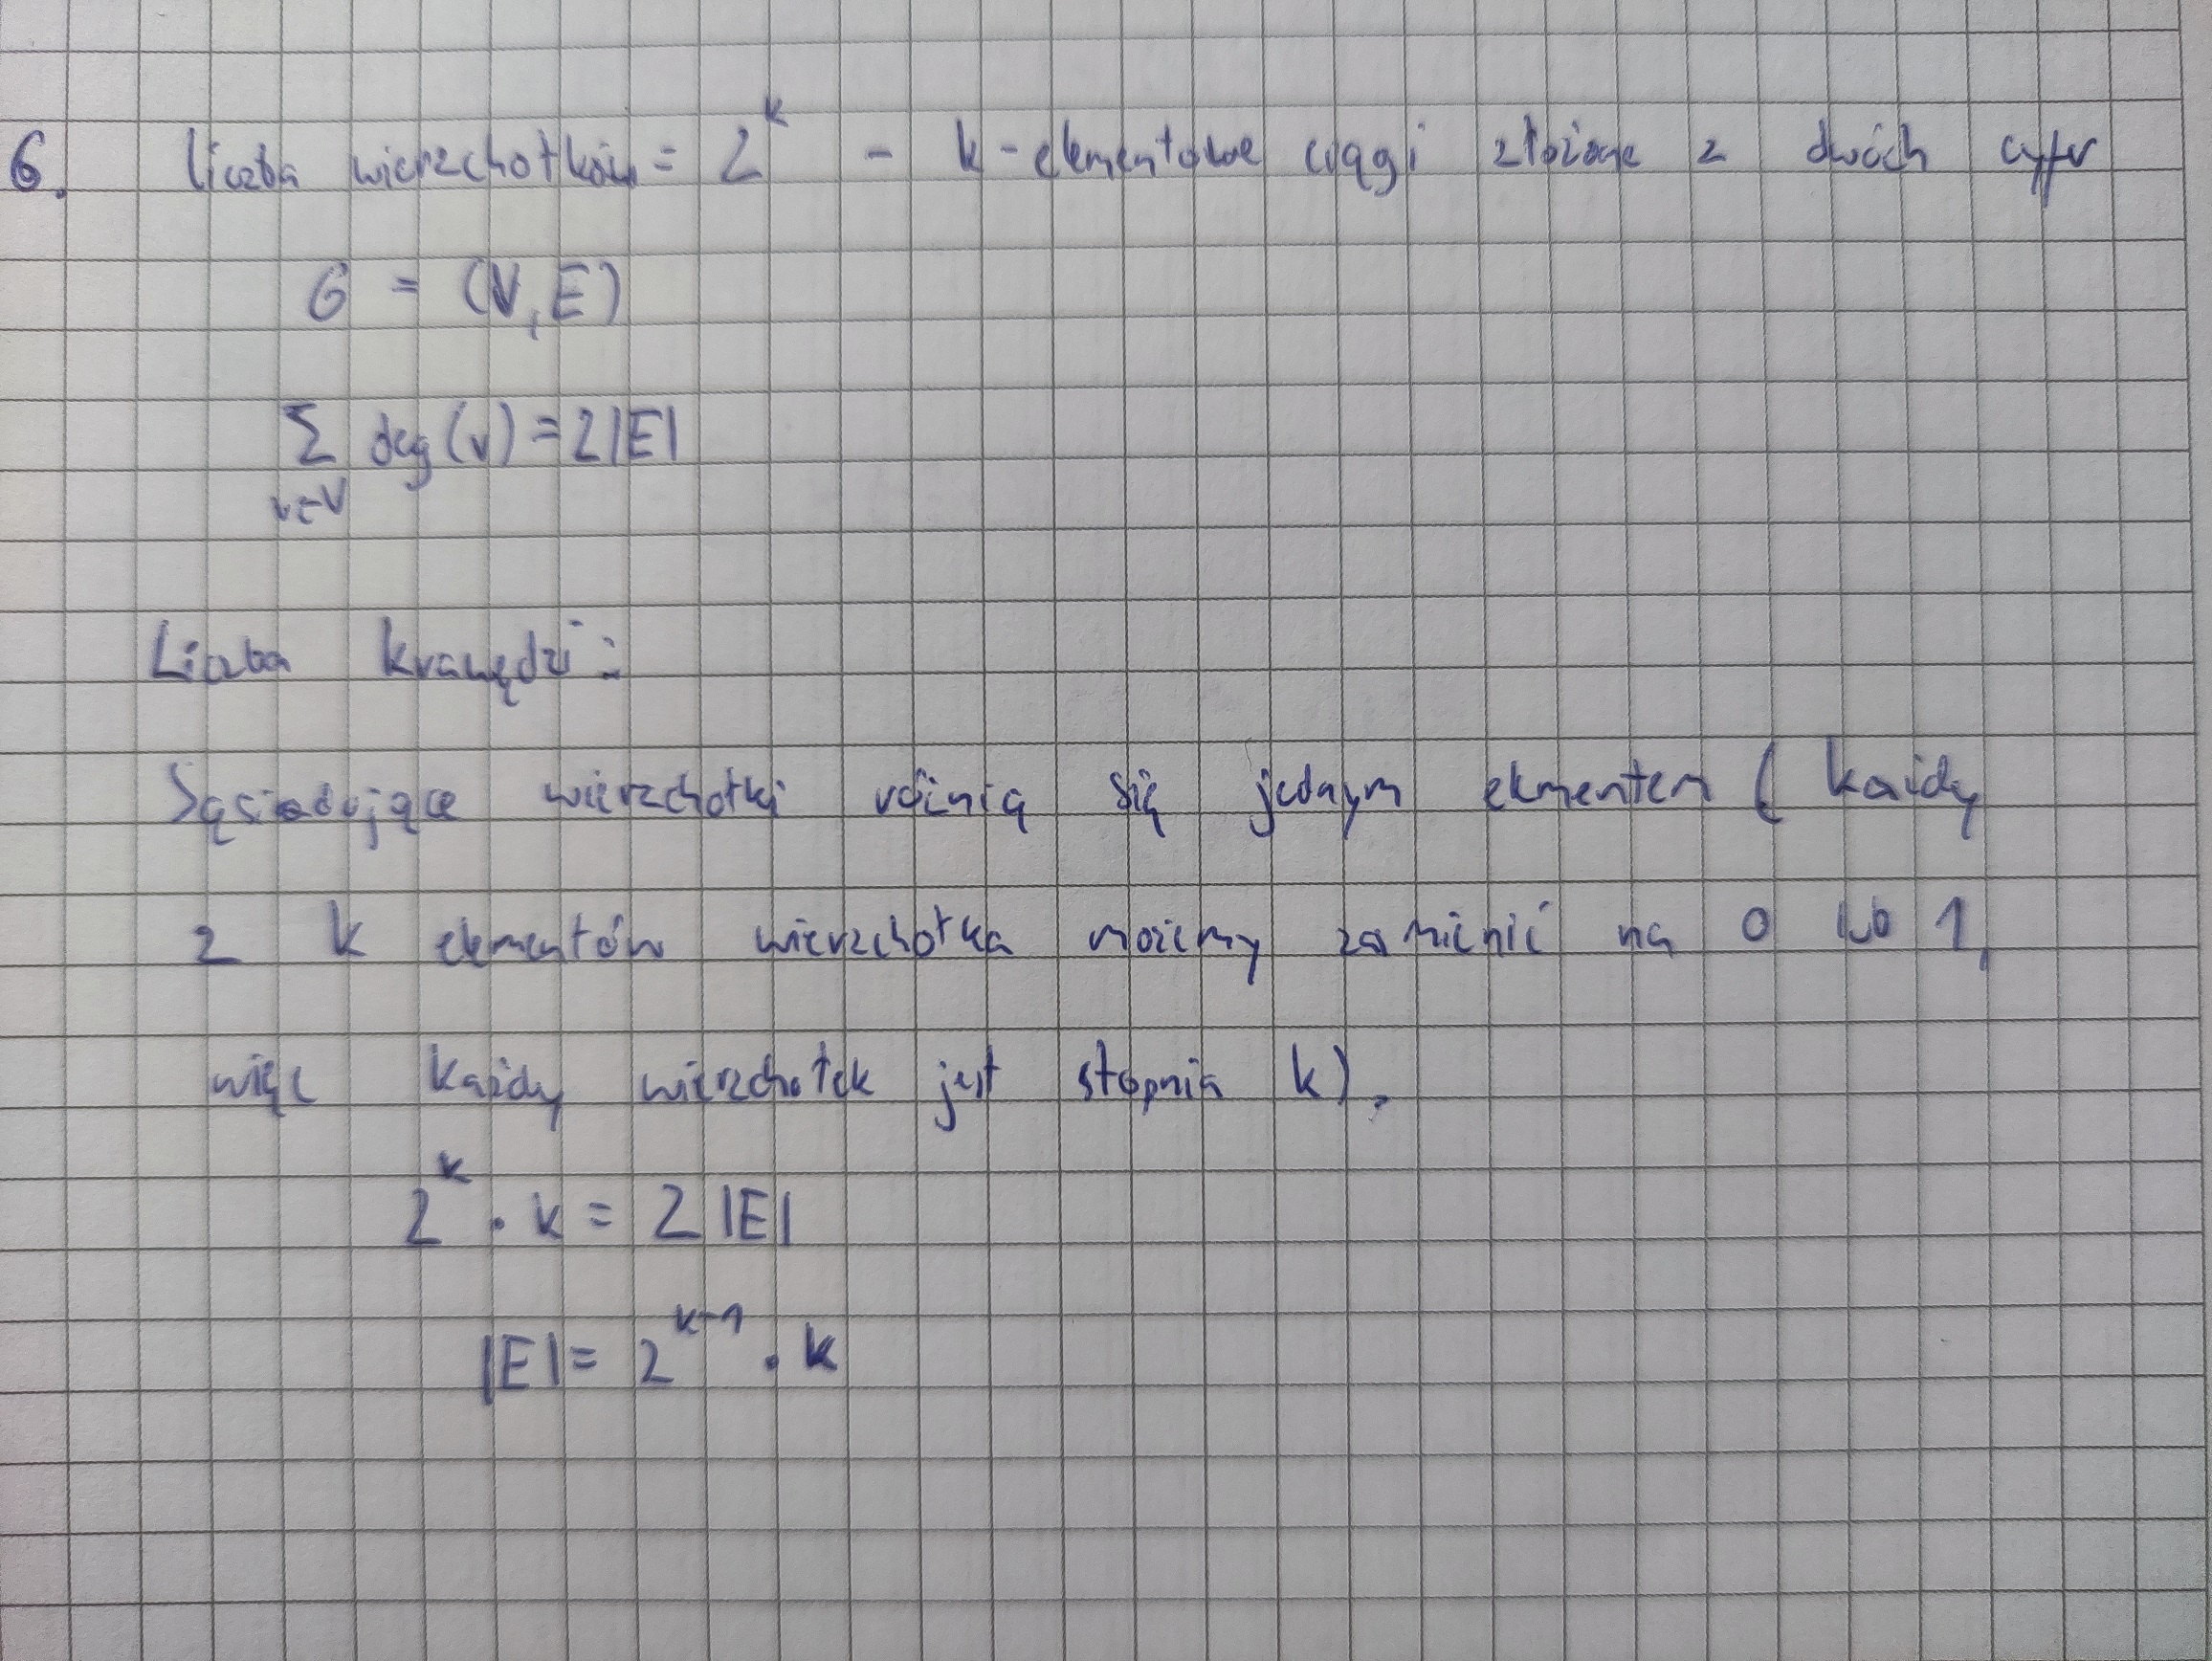 6. liczba wierzchołków = 2^k - k-elementowe ciągi złożone z dwóch cyfr
G = (V, E)
∑ deg(v) = 2|E|
v∈V
Liczba krawędzi:
Sąsiadujące wierzchołki różnią się jednym elementem ( każdy
z k elementów wierzchołka możemy zamienić na 0 lub 1,
więc każdy wierzchołek jest stopnia k).
2^k · k = 2|E|
|E| = 2^{k-1} · k